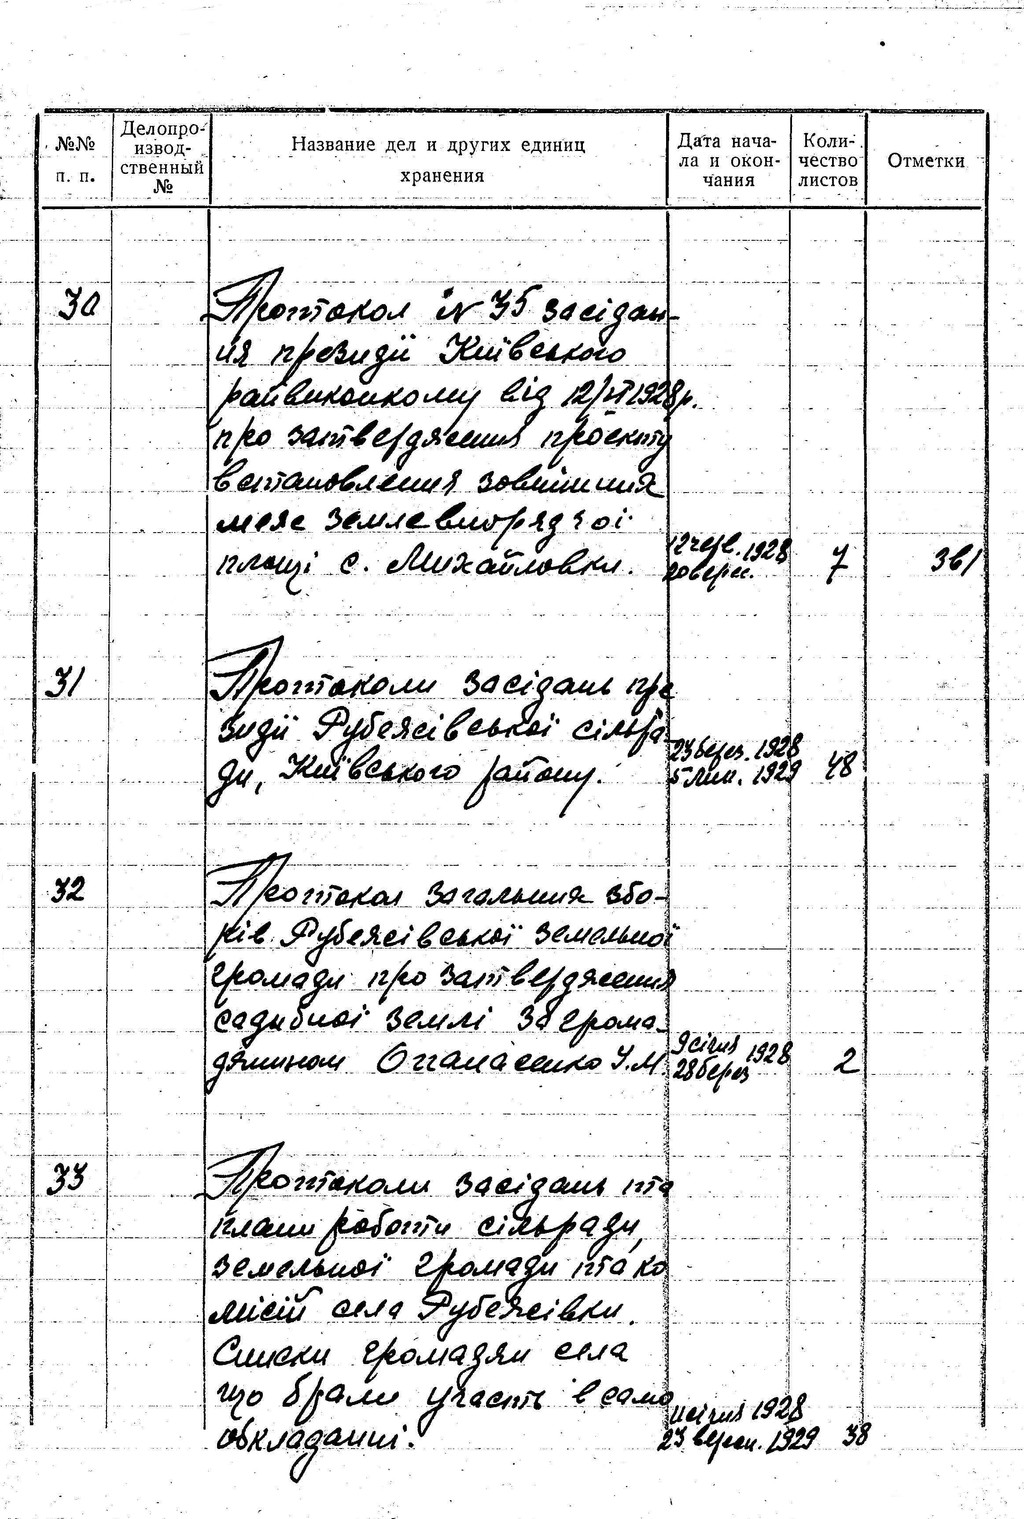 №№ п. п.
Делопро-
извод-
ственный
№
Название дел и других единиц
хранения
Дата нача-
ла и окон-
чания
Коли-
чество
листов
Отметки
30
Протокол № 35 засідан-
ня президії Київського
райвиконкому від 12/VI 1928 р.
про затвердження проекту
встановлення зовнішних
меж землевпорядчої
площі с. Михайловки.
12 черв. 1928
20 верес.
7
Зв1
31
Протоколи засідань пре
зидії Рубежівської сільра-
ди, Київського району.
23 берез. 1928
5 лип. 1929
48
32
Протокол загальних збо-
рів Рубежівської земельної
громади про затвердження
садибної землі за грома-
дянином Опанасенко У.М.
9 січня 1928
28 берез
2
33
Протоколи засідань та
плани роботи сільради,
земельної громади та ко
місій села Рубежівки.
Списки громадян села
що брали участь в само
обкладанні.
11 січня 1928
23 верес. 1929
38